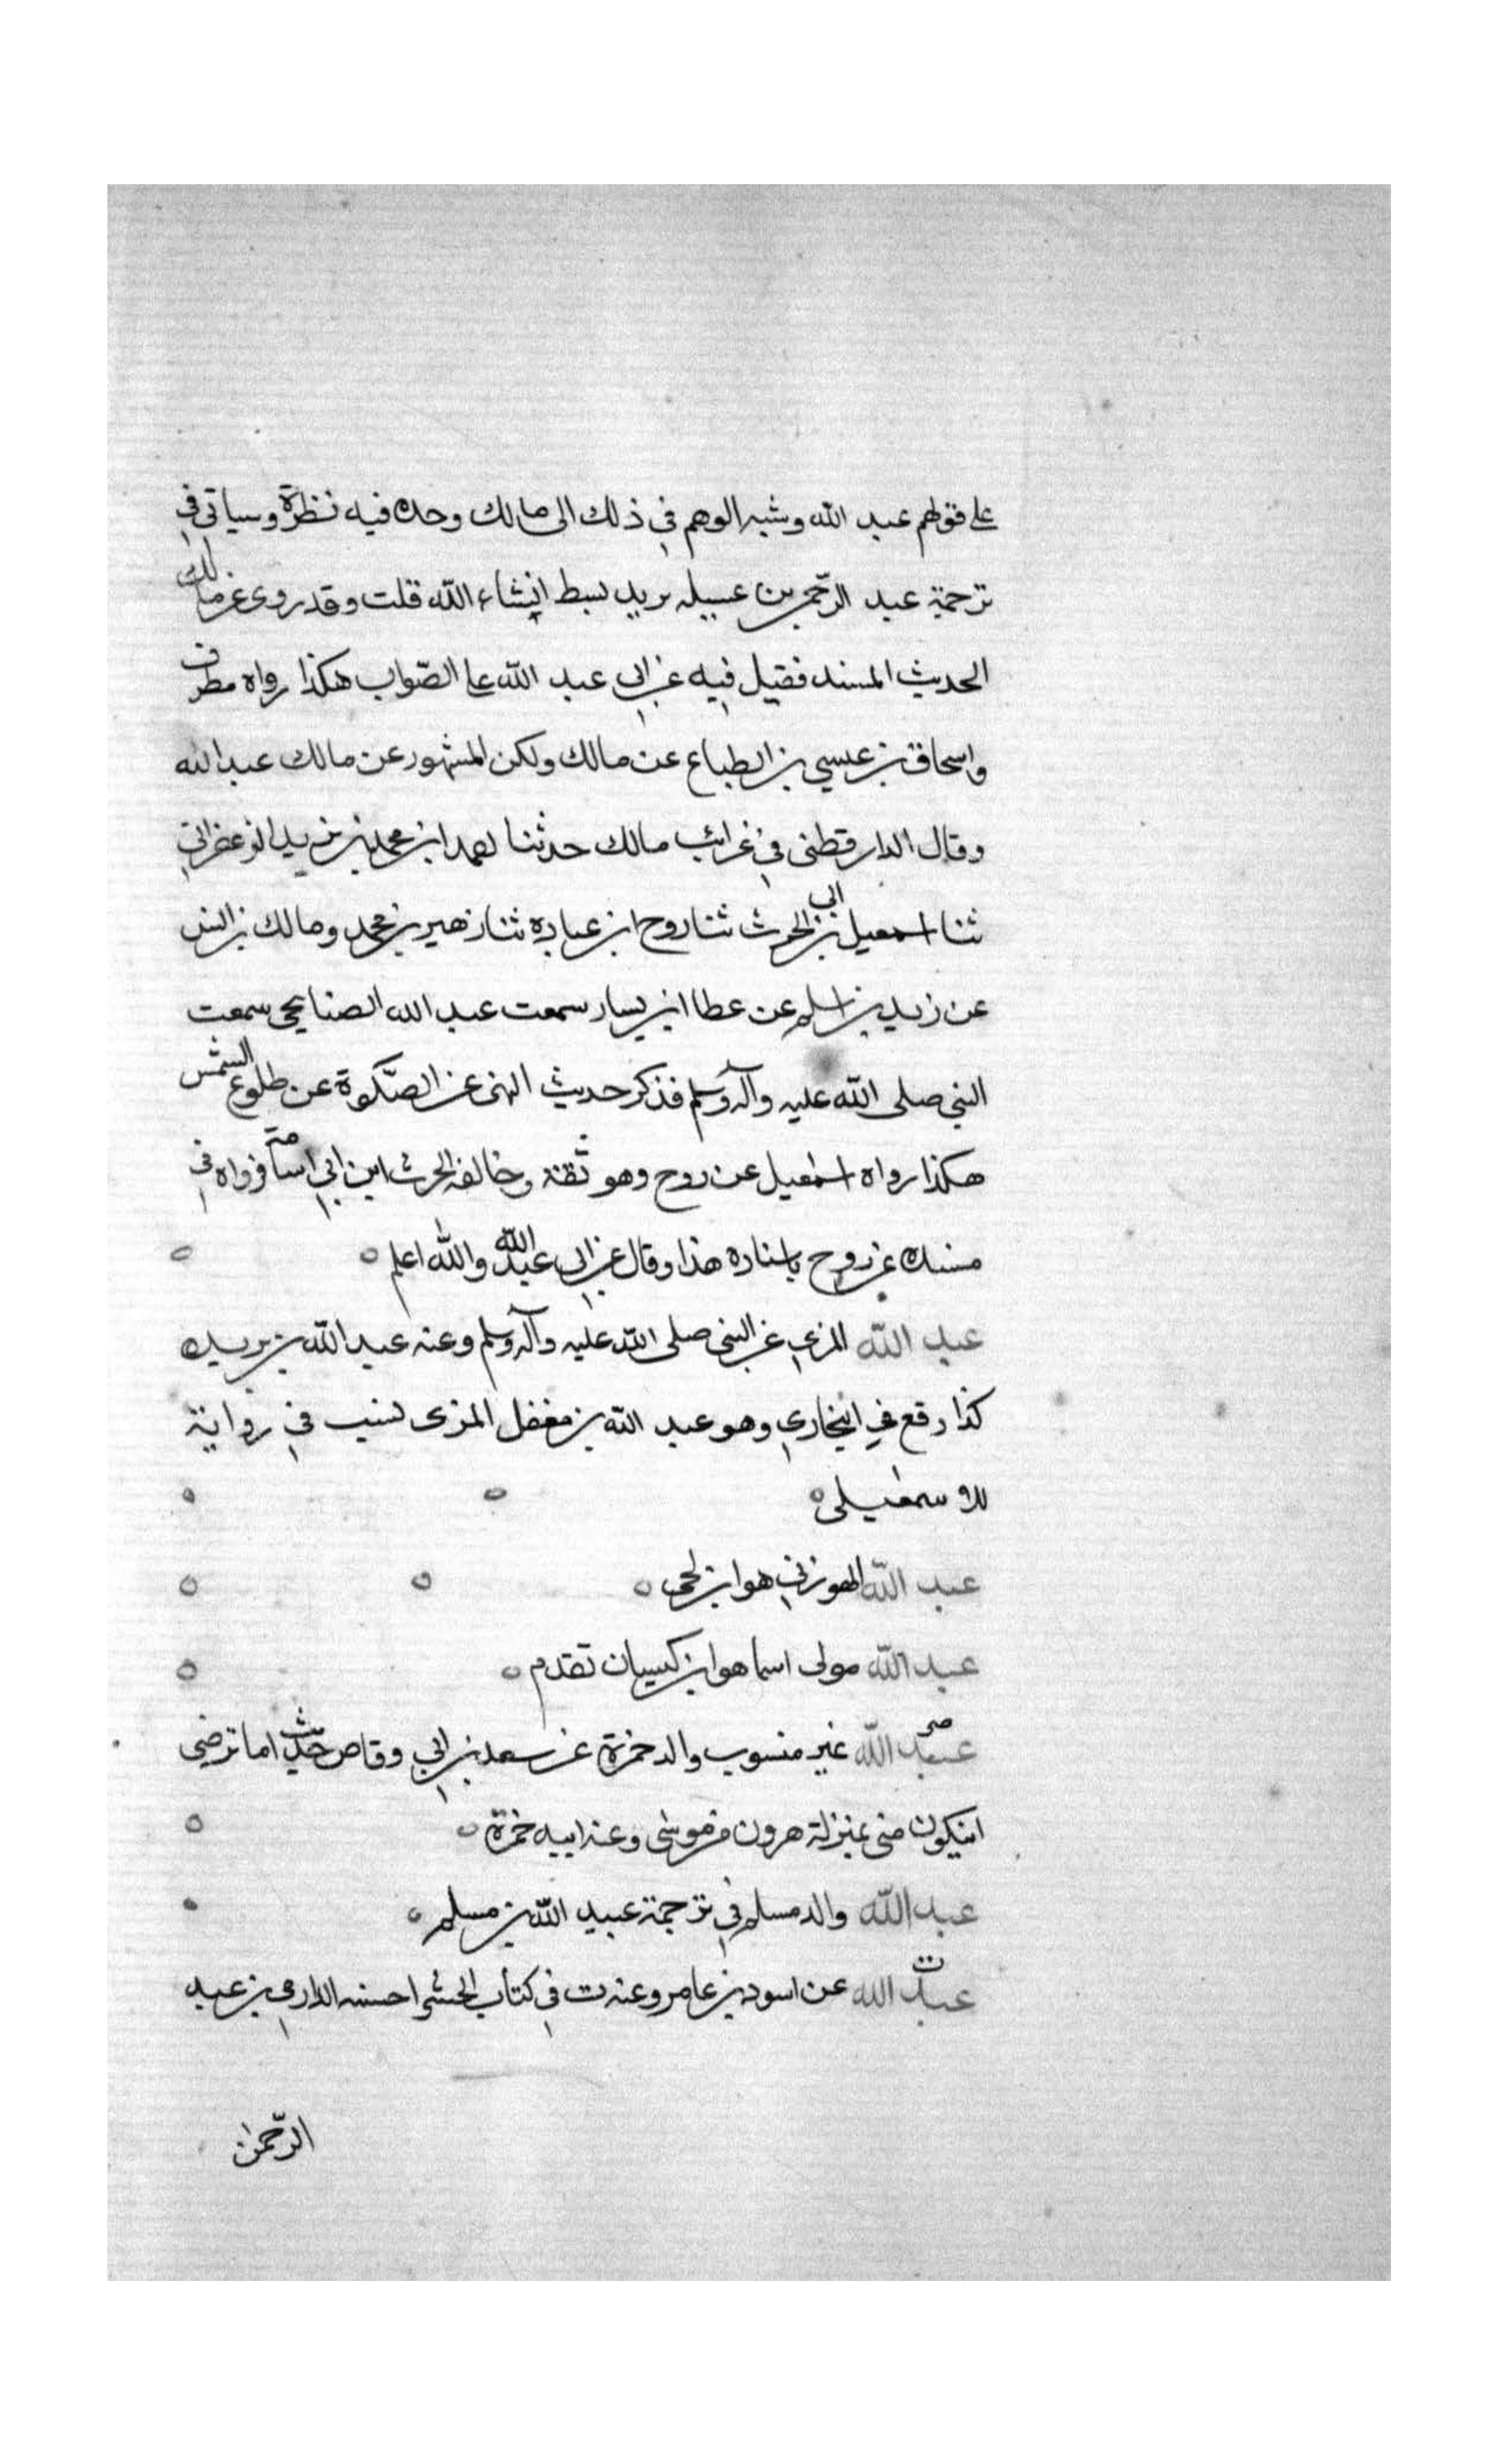 على قولهم عبد الله وشبه الوهم في ذلك الى مالك وحده فيه نظرة وسياتي في
ترجمة عبد الرحمن بن عسيله بريد بسط انشاء الله قلت وقد روى عن مالك
الحديث المسند فقيل فيه عن ابي عبد الله على الصواب هكذا رواه مطرف
واسحاق بن عيسي بن الطباع عن مالك ولكن المشهور عن مالك عبد الله
وقال الدارقطنى في غرائب مالك حدثنا احمد ابن محمد بن يزيد الزعفراني
ثنا اسمعيل بن ابي الحرث ثنا روح ابن عباده ثنا زهير بن محمد ومالك بن انس
عن زيد بن اسلم عن عطا ابن يسار سمعت عبد الله الصنابحى سمعت
النبي صلى الله عليه وآله وسلم فذكر حديث النهى عن الصلوة عن طلوع الشمس
هكذا رواه اسمعيل عن روح وهو ثقة وخالفه الحرث ابن ابي اسامة فرواه في
مسنده عن روح باسناده هذا وقال عن ابي عبد الله والله اعلم
عبد الله المزني عن النبى صلى الله عليه وآله وسلم وعنه عبد الله بن بريده
كذا وقع في البخاري وهو عبد الله بن مغفل المزنى نسب في رواية
للاسمعيلى
عبد الله الهوزني هو ابن لحى
عبد الله مولى اسما هو ابن كيسان تقدم
ص
عبد الله غير منسوب والد حمزة عن سعد بن ابي وقاص حديث اما ترضى
انيكون منى بمنزلة هرون من موسى وعنه ابيه حمزة
عبد الله والد مسلم في ترجمة عبيد الله بن مسلم
ت
عبد الله عن اسود بن عامر وعنه ت في كتاب احسبه الدارمي بن عبد
الرحمن